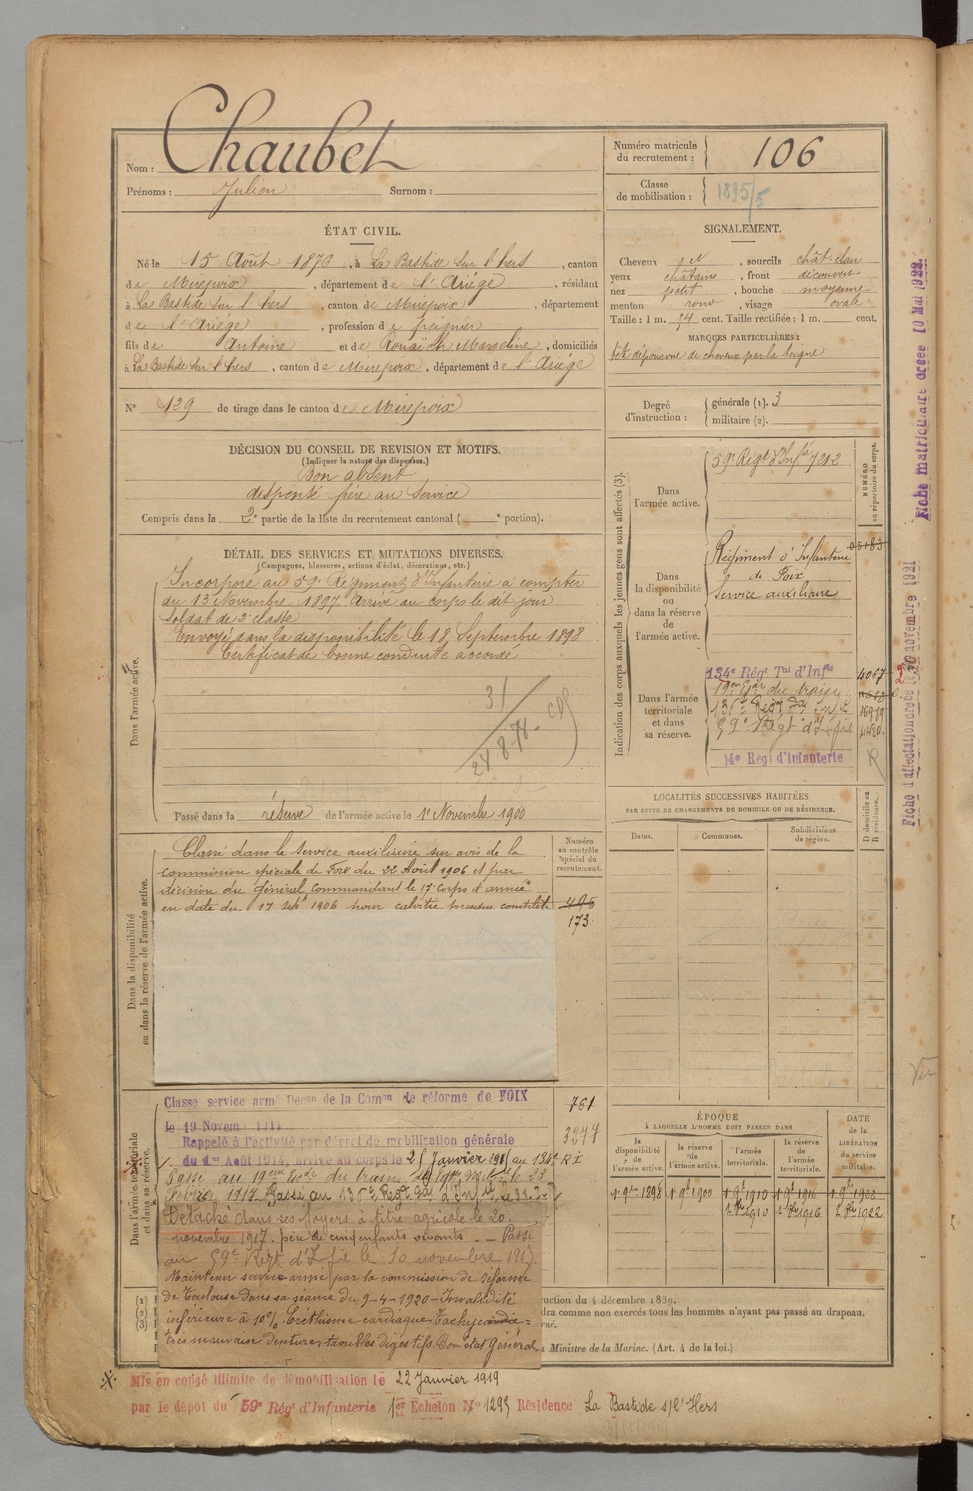 Nom : Chaubet
Prénoms : Julien Surnom :
Numéro matricule du recrutement : 106
Classe de mobilisation : 1895/5
ÉTAT CIVIL.
Né le 15 Août 1876, à La Bastide sur l'hers, canton
de Mirepoix, département de l'Ariége, résidant
à La Bastide sur l'hers, canton de Mirepoix, département
de l'Ariége, profession de peigneur
fils de Antoine et de Rouaïch Marceline, domiciliés
à La Bastide sur l'hers, canton de Mirepoix, département de l'Ariége
N° 129 de tirage dans le canton de Mirepoix
SIGNALEMENT.
Cheveux, sourcils chât-clair
yeux châtains, front découvert
nez petit, bouche moyenne
menton rond, visage ovale
Taille : 1 m. 74 cent. Taille rectifiée : 1 m. cent.
MARQUES PARTICULIÈRES :
tête dépourvue de cheveux par la teigne
Degré d'instruction : générale (1). 3
militaire (2).
DÉCISION DU CONSEIL DE REVISION ET MOTIFS.
(Indiquer la nature des dispenses.)
Bon absent
dispensé frère au service
Compris dans la 2e partie de la liste du recrutement cantonal ( e portion).
DÉTAIL DES SERVICES ET MUTATIONS DIVERSES.
(Campagnes, blessures, actions d'éclat, décorations, etc.)
Dans l'armée active.
Incorporé au 59e Régiment d'Infanterie à compter
du 13 Novembre 1897 Arrivé au corps le dit jour
Soldat de 2e classe
Envoyé dans la disponibilité le 18 Septembre 1898
Certificat de bonne conduite accordé
31
24-8-76-
Passé dans la réserve de l'armée active le 1er Novembre 1900
Dans la disponibilité ou dans la réserve de l'armée active.
Classé dans le service auxiliaire sur avis de la
commission spéciale de Foix du 22 Août 1906 et par
décision du général commandant le 17e corps d'armée
en date du 17 sept 1906 pour calvitie presque complète
Numéro au contrôle spécial du recrutement.
496
173
Dans l'armée territoriale et dans sa réserve.
Classé service armé Décon de la Comon de réforme de FOIX
le 19 Novem 1914
Rappelé à l'activité par décret de mobilisation générale
du 1er Août 1914, arrivé au corps le 25 Janvier 1915 au 134e RI
Passé au 19e du train le 23
Février 1917. Passé au 135e Régt d'Inf
Détaché dans ses foyers à titre agricole le 20
novembre 1917. père de cinq enfants vivants. - Passé
au 59e Régt d'Infie le 10 novembre 1917.
Maintenu service armé par la commission de réforme
de Toulouse dans sa séance du 9-4-1920 - Invalidité
inférieure à 10% Eréthisme cardiaque, Tachycardie =
très mauvaise denture, troubles digestifs. Bon état général
761
3277
Indication des corps auxquels les jeunes gens sont affectés (3).
Dans l'armée active.
59e Régt d'Infie 7212
NUMÉRO au répertoire du corps.
Dans la disponibilité ou dans la réserve de l'armée active.
Régiment d'Infanterie
de Foix
Service auxiliaire
05183
Dans l'armée territoriale et dans sa réserve.
134e Régt Tal d'Infie 4067
du train
135e Régt
59e Régt d'Infie
14e Régt d'Infanterie
R
LOCALITÉS SUCCESSIVES HABITÉES
PAR SUITE DE CHANGEMENTS DE DOMICILE OU DE RÉSIDENCE.
Dates. Communes. Subdivisions de région. D domicile ou R résidence.
ÉPOQUE
À LAQUELLE L'HOMME DOIT PASSER DANS
la disponibilité de l'armée active. la réserve de l'armée active. l'armée territoriale. la réserve de l'armée territoriale.
DATE de la LIBÉRATION DU SERVICE militaire.
1er 9bre 1898 1er 9bre 1900 1er 9bre 1910 1er 9bre 1916 1er 9bre 1922
1er 8bre 1910 1er 8bre 1916 1er 8bre 1922
(1)
(2)
(3)
uction du 4 décembre 1889.
dra comme non exercés tous les hommes n'ayant pas passé au drapeau.
rné.
Ministre de la Marine. (Art. 4 de la loi.)
Mis en congé illimité de démobilisation le 22 Janvier 1919
par le dépôt du 59e Régt d'Infanterie 1er Echelon No 1295 Résidence La Bastide s/l'Hers
Fiche matriculaire créée 10 Mai 1922.
Fiche d'affectation créée novembre 1921
Vu